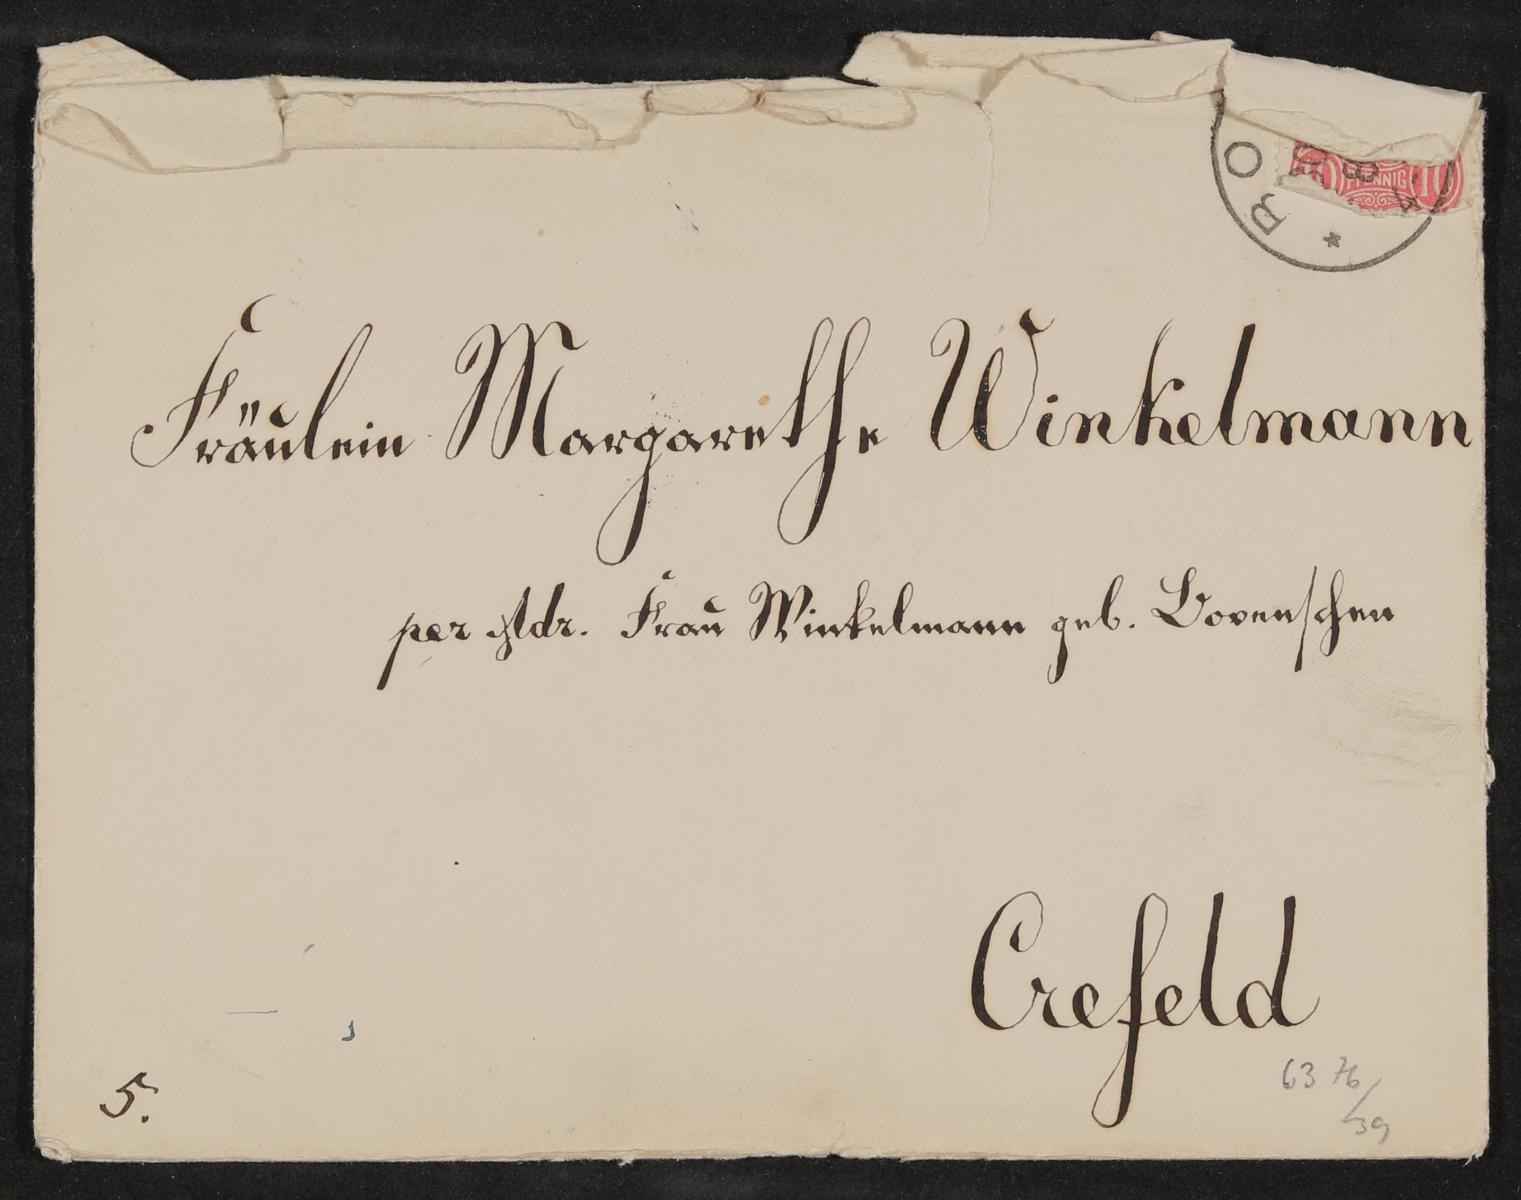 BO
10 PFENNIG 10
Fräulein Margarethe Winkelmann
per Adr. Frau Winkelmann geb. Bovenschen
Crefeld
5.
63 76/39